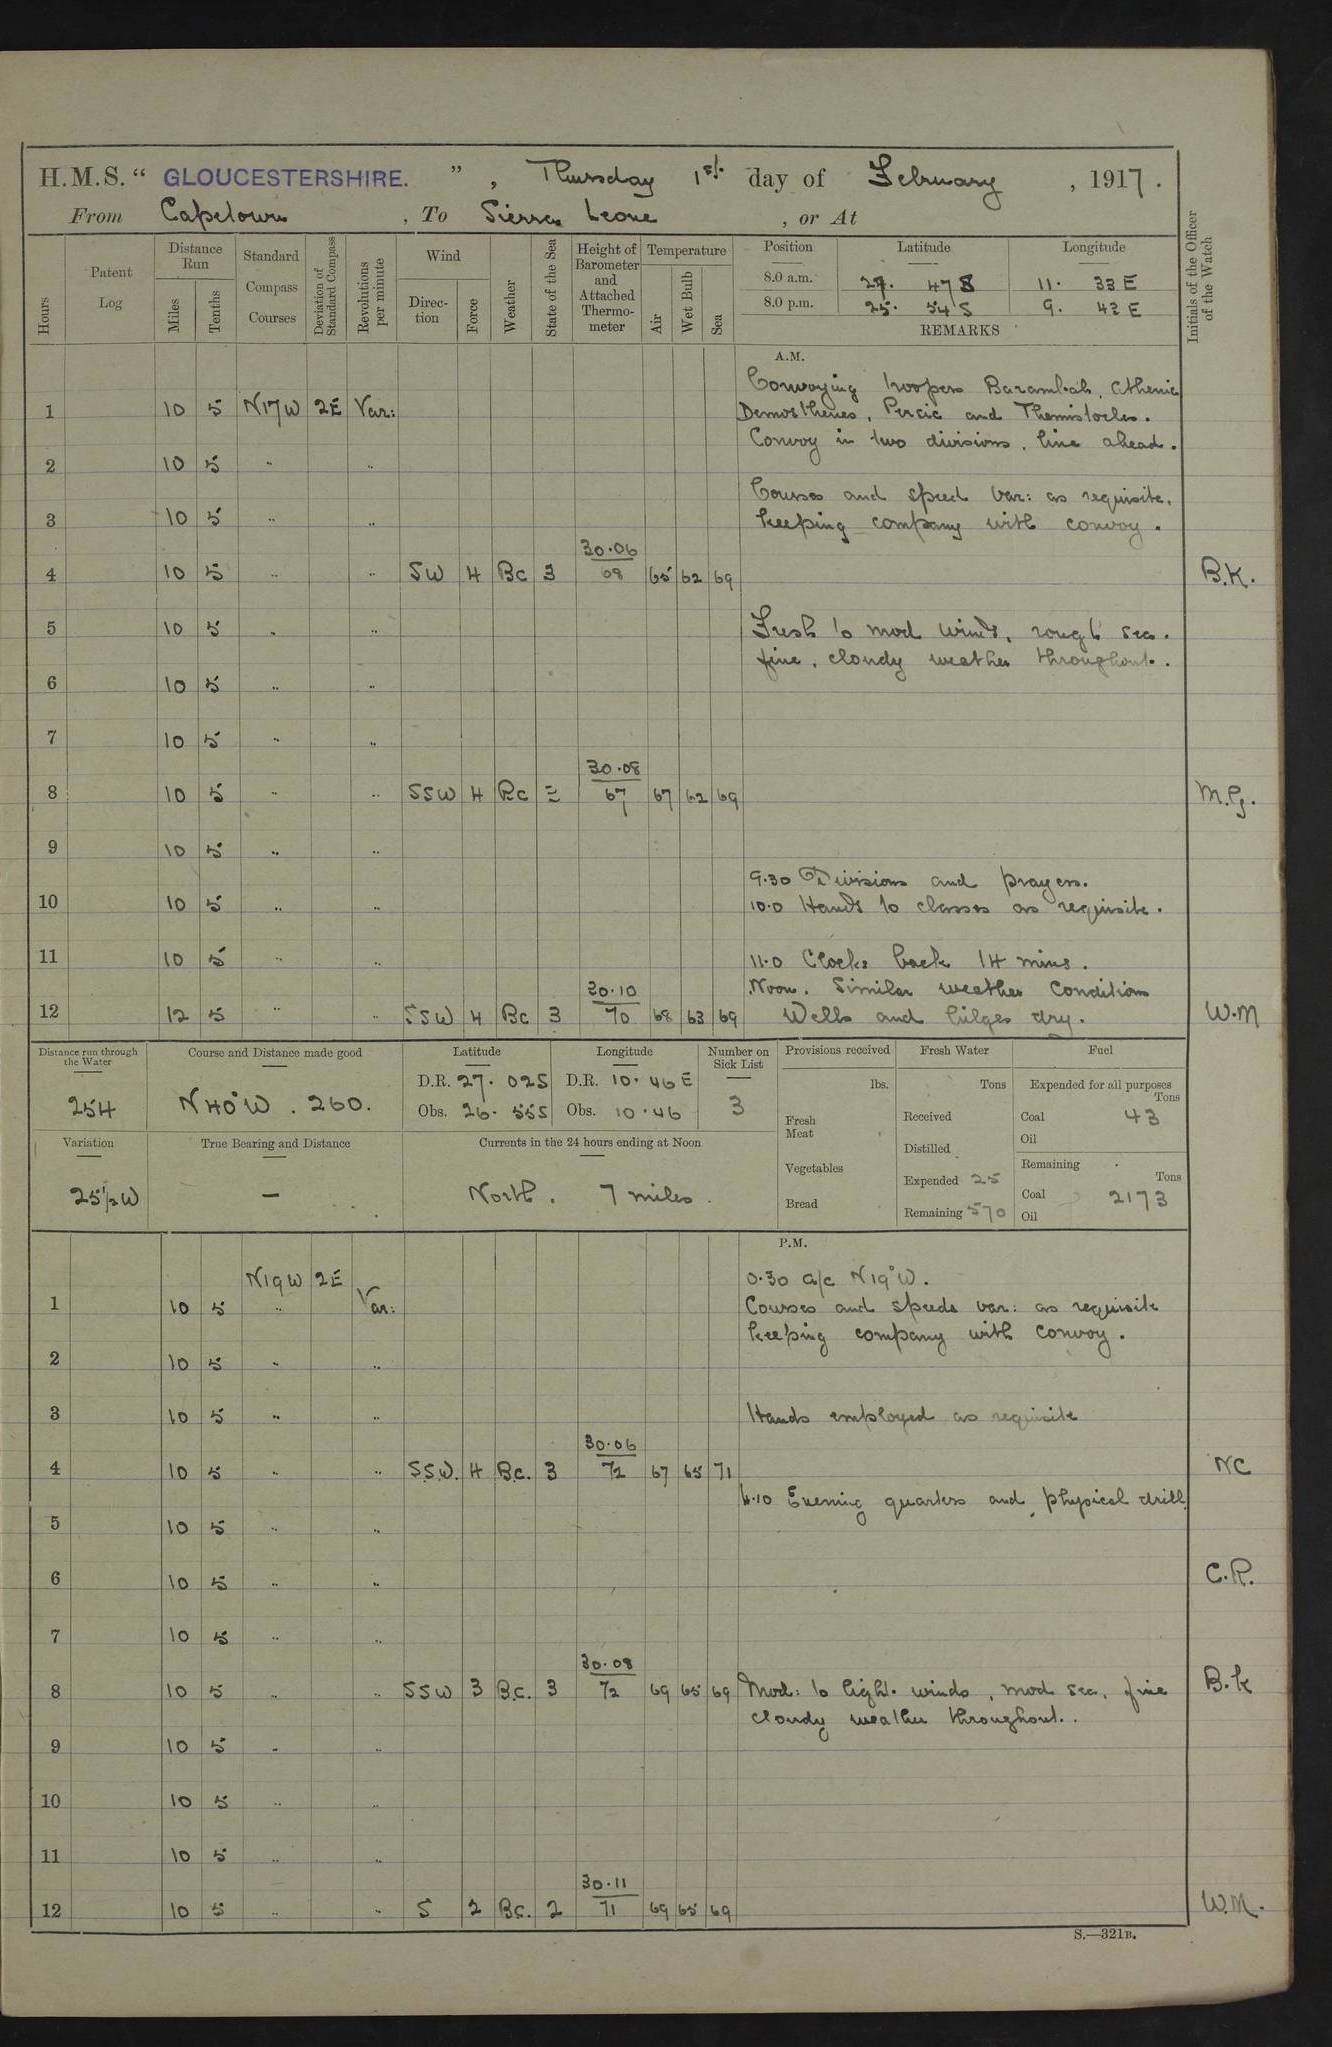 H.M.S. “ GLOUCESTERSHIRE. ” , Thursday 1st. day of February , 1917.
From Capetown , To Sierra Leone , or At
Hours
Patent Log
Distance Run
Miles
Tenths
Standard Compass Courses
Deviation of Standard Compass
Revolutions per minute
Wind
Direc-tion
Force
Weather
State of the Sea
Height of Barometer and Attached Thermo-meter
Temperature
Air
Wet Bulb
Sea
Position Latitude Longitude
8.0 a.m. 27. 47 S 11. 33 E
8.0 p.m. 25. 54 S 9. 43 E
REMARKS
Initials of the Officer of the Watch
A.M.
Convoying troopers Barambah, Athenic
1 10 5 N17W 2E Var: Demosthenes, Persic and Themistocles.
Convoy in two divisions, line ahead.
2 10 5 " "
Courses and speed var: as requisite,
3 10 5 " " keeping company with convoy.
30.06
4 10 5 " " SW 4 Bc 3 68 65 62 69 B.K.
5 10 5 " " Fresh to mod winds, rough sea.
fine, cloudy weather throughout.
6 10 5 " "
7 10 5 " "
30.08
8 10 5 " " SSW 4 Bc 67 67 62 69 M.G.
9 10 5 " "
9.30 Divisions and prayers.
10 10 5 " " 10.0 Hands to classes as requisite.
11 10 5 " " 11.0 Clocks back 14 mins.
30.10 Noon. Similar weather conditions
12 12 5 " " SSW 4 Bc 3 70 68 63 69 Wells and bilges dry. W.M
Distance run through the Water
254
Course and Distance made good
N40°W . 260.
Latitude
D.R. 27. 02S
Obs. 26. 55S
Longitude
D.R. 10. 46 E
Obs. 10. 46
Number on Sick List
3
Variation
25½W
True Bearing and Distance
—
Currents in the 24 hours ending at Noon
North. 7 miles.
Provisions received
lbs.
Fresh Meat
Vegetables
Bread
Fresh Water
Tons
Received
Distilled
Expended 25
Remaining 570
Fuel
Expended for all purposes
Tons
Coal 43
Oil
Remaining
Tons
Coal 2173
Oil
P.M.
N19W 2E 0.30 a/c N19°W.
1 10 5 " Var: Courses and speeds var: as requisite
keeping company with convoy.
2 10 5 " "
3 10 5 " " Hands employed as requisite
30.06
4 10 5 " " S.S.W. 4 B.c. 3 72 67 65 71 NC
4.10 Evening quarters and physical drill.
5 10 5 " "
6 10 5 " " C.R.
7 10 5 " "
30.08
8 10 5 " " SSW 3 B.c. 3 72 69 65 69 Mod: to light winds, mod sea, fine B.K
cloudy weather throughout.
9 10 5 " "
10 10 5 " "
11 10 5 " "
30.11
12 10 5 " " S 2 Bc. 2 71 69 65 69 W.M.
S.—321B.